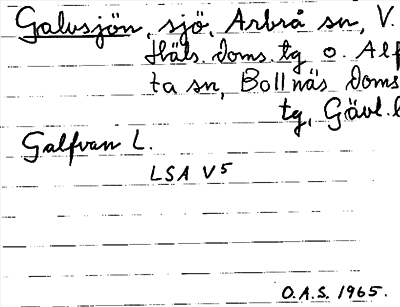 Galvsjön, sjö, Arbrå sn, V.
Häls. doms. tg o. Alf
ta sn, Bollnäs doms
tg, Gävl. l
Galfvan L.
LSA V5
O.A.S. 1965.